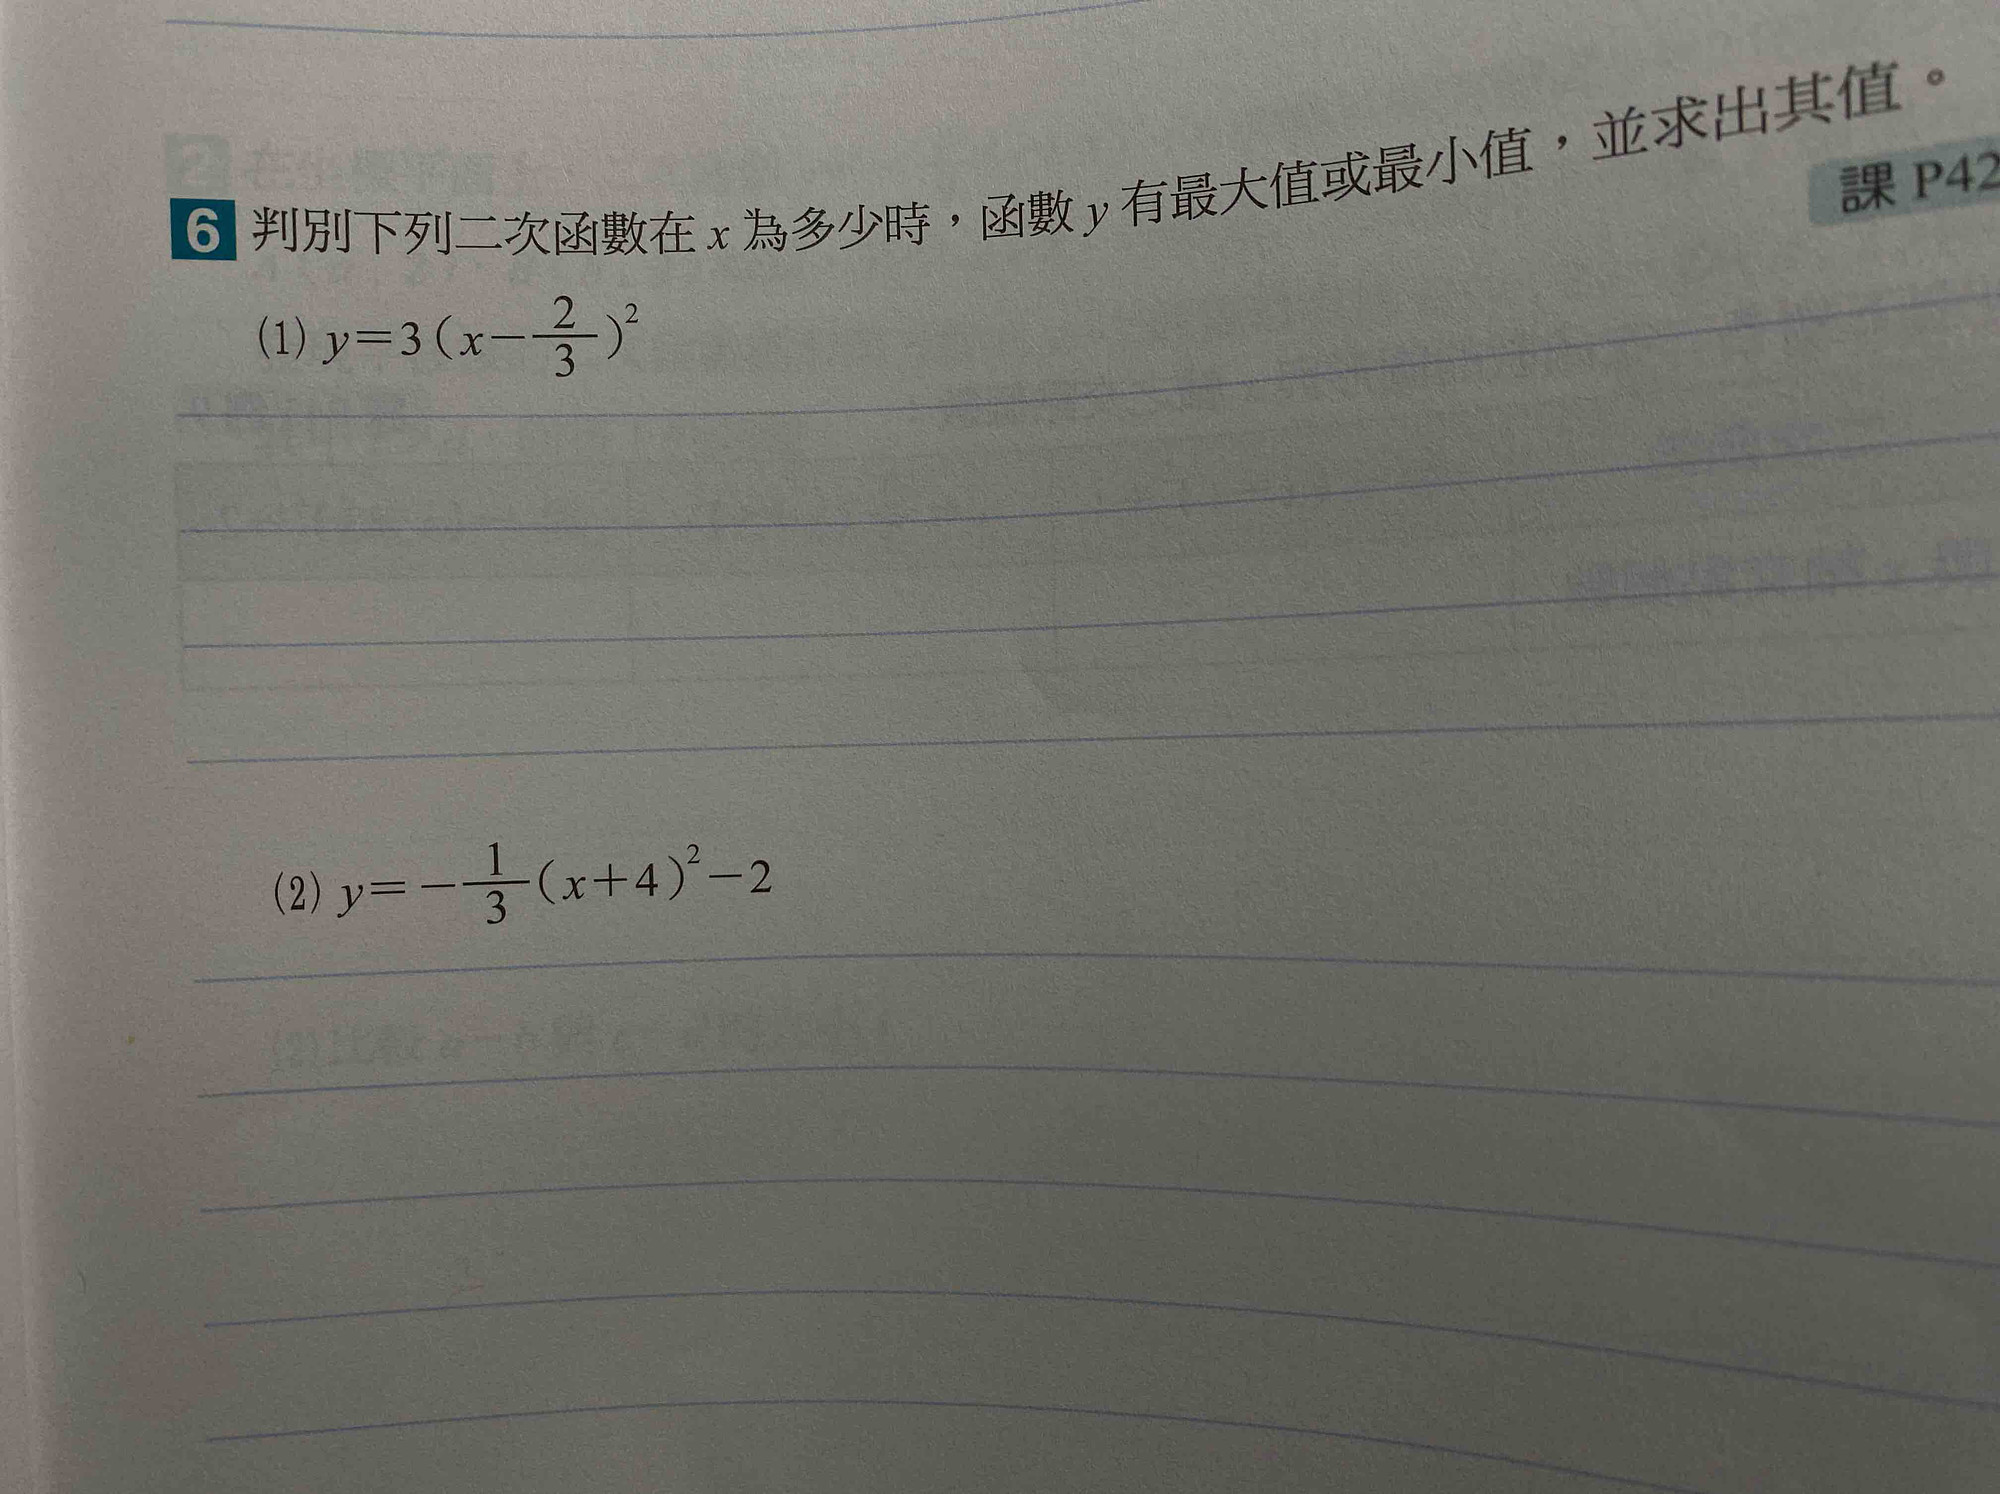 6 判別下列二次函數在 x 為多少時，函數 y 有最大值或最小值，並求出其值。
課 P42
(1) y=3(x-\frac{2}{3})²
(2) y=-\frac{1}{3}(x+4)²-2